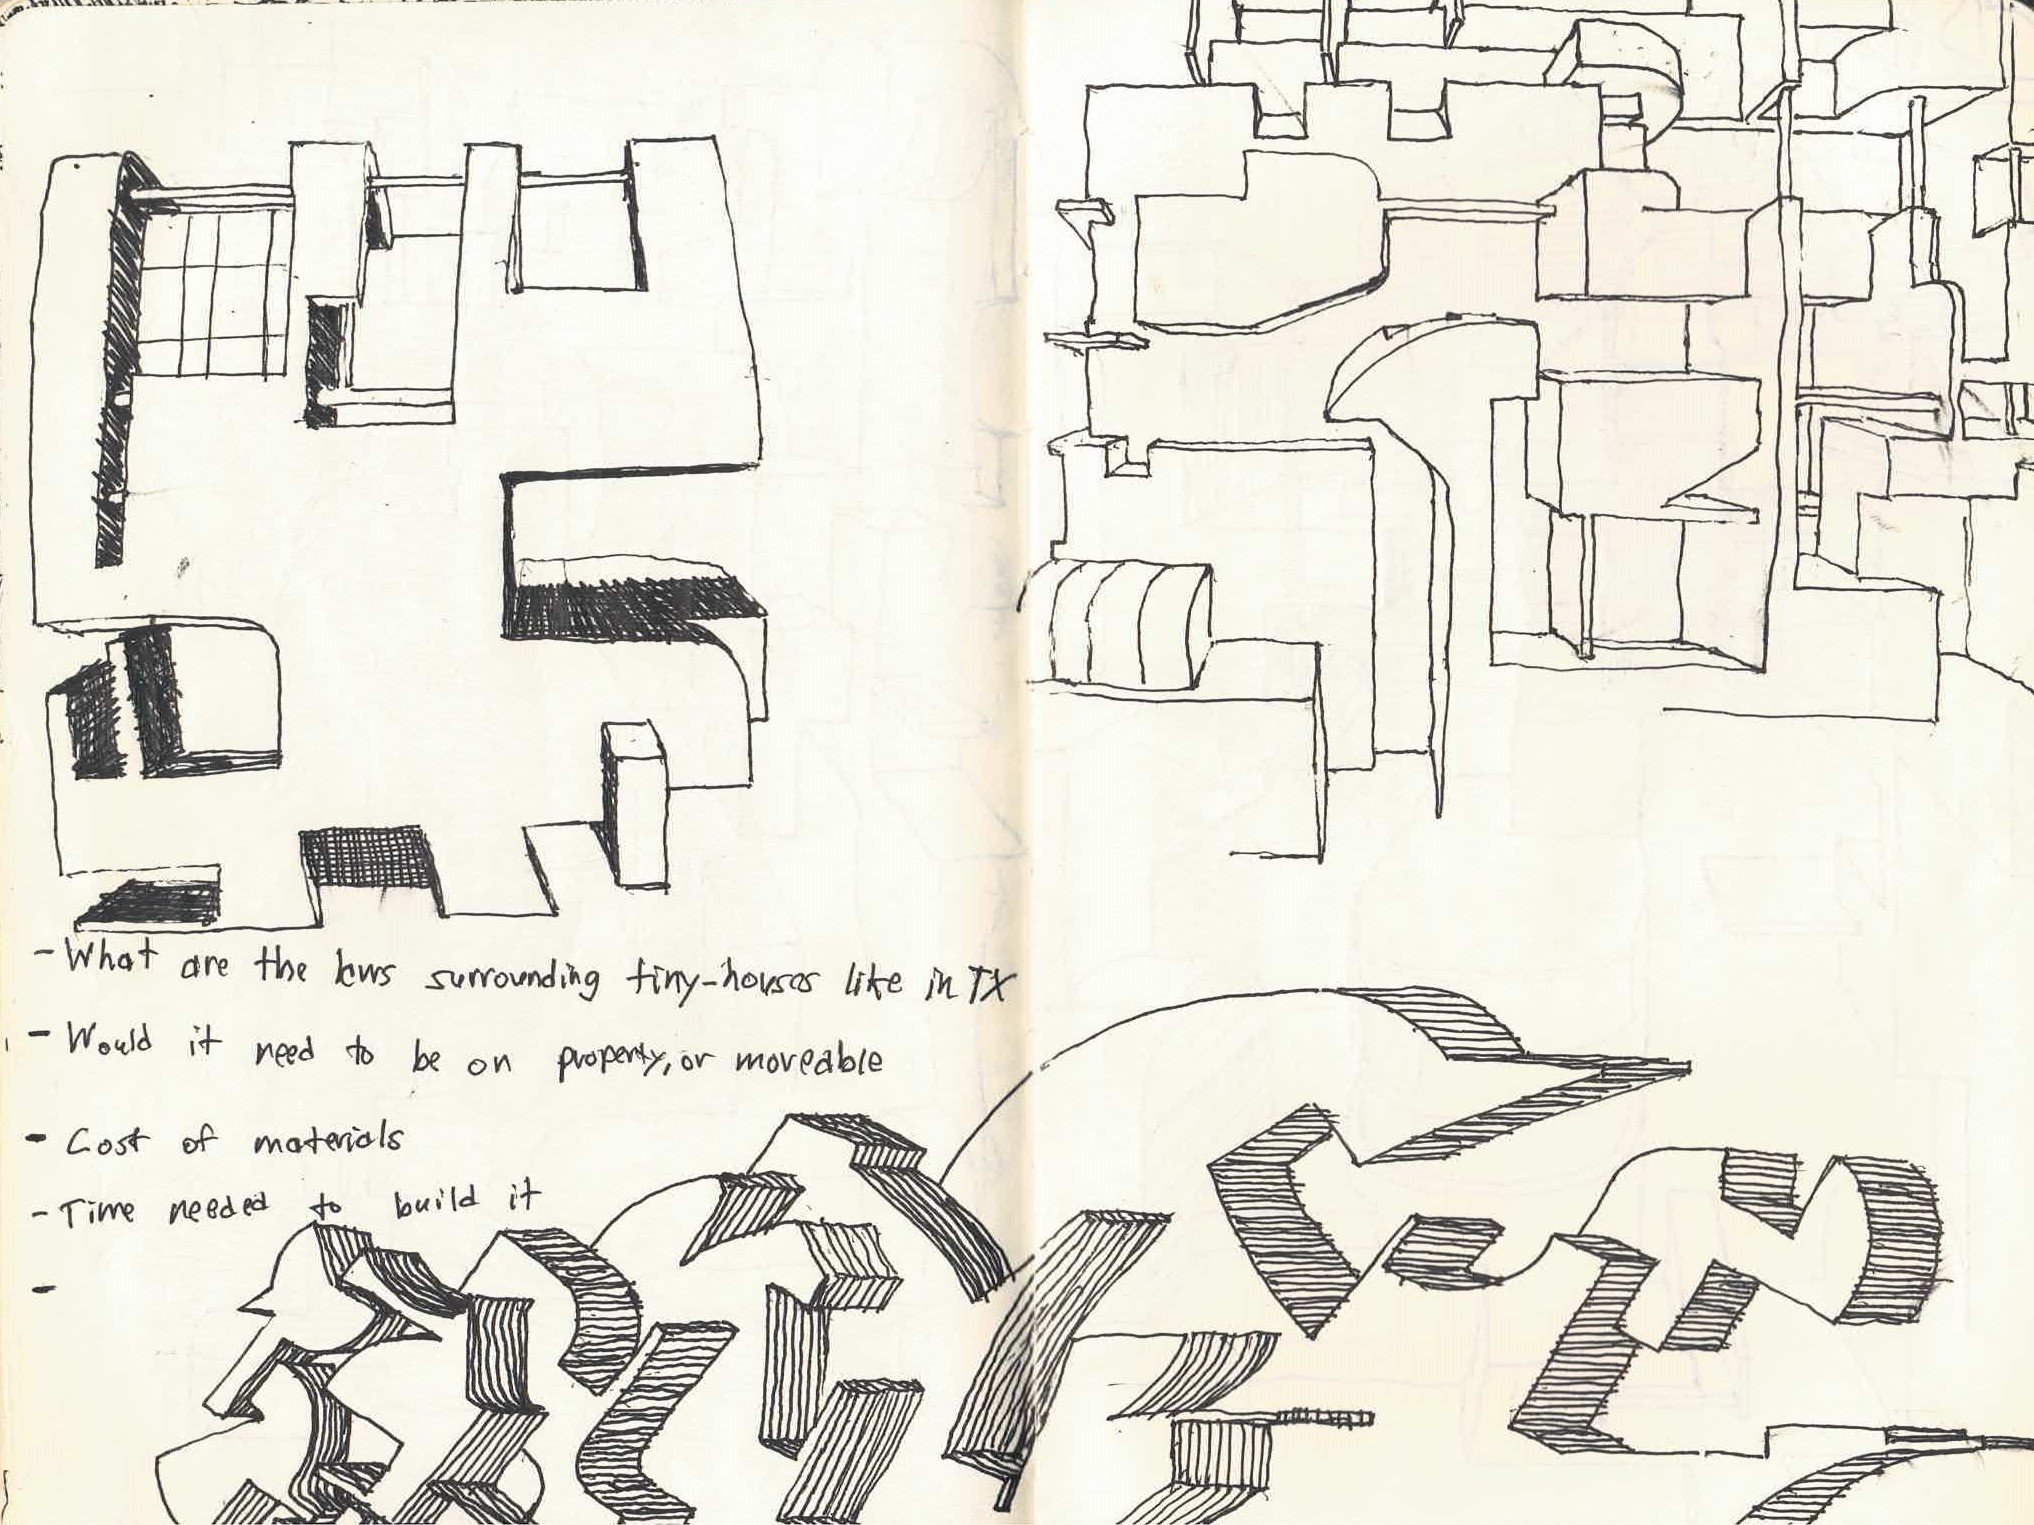 - What are the laws surrounding tiny-houses like in TX
- Would it need to be on property, or moveable
- Cost of materials
- Time needed to build it
-